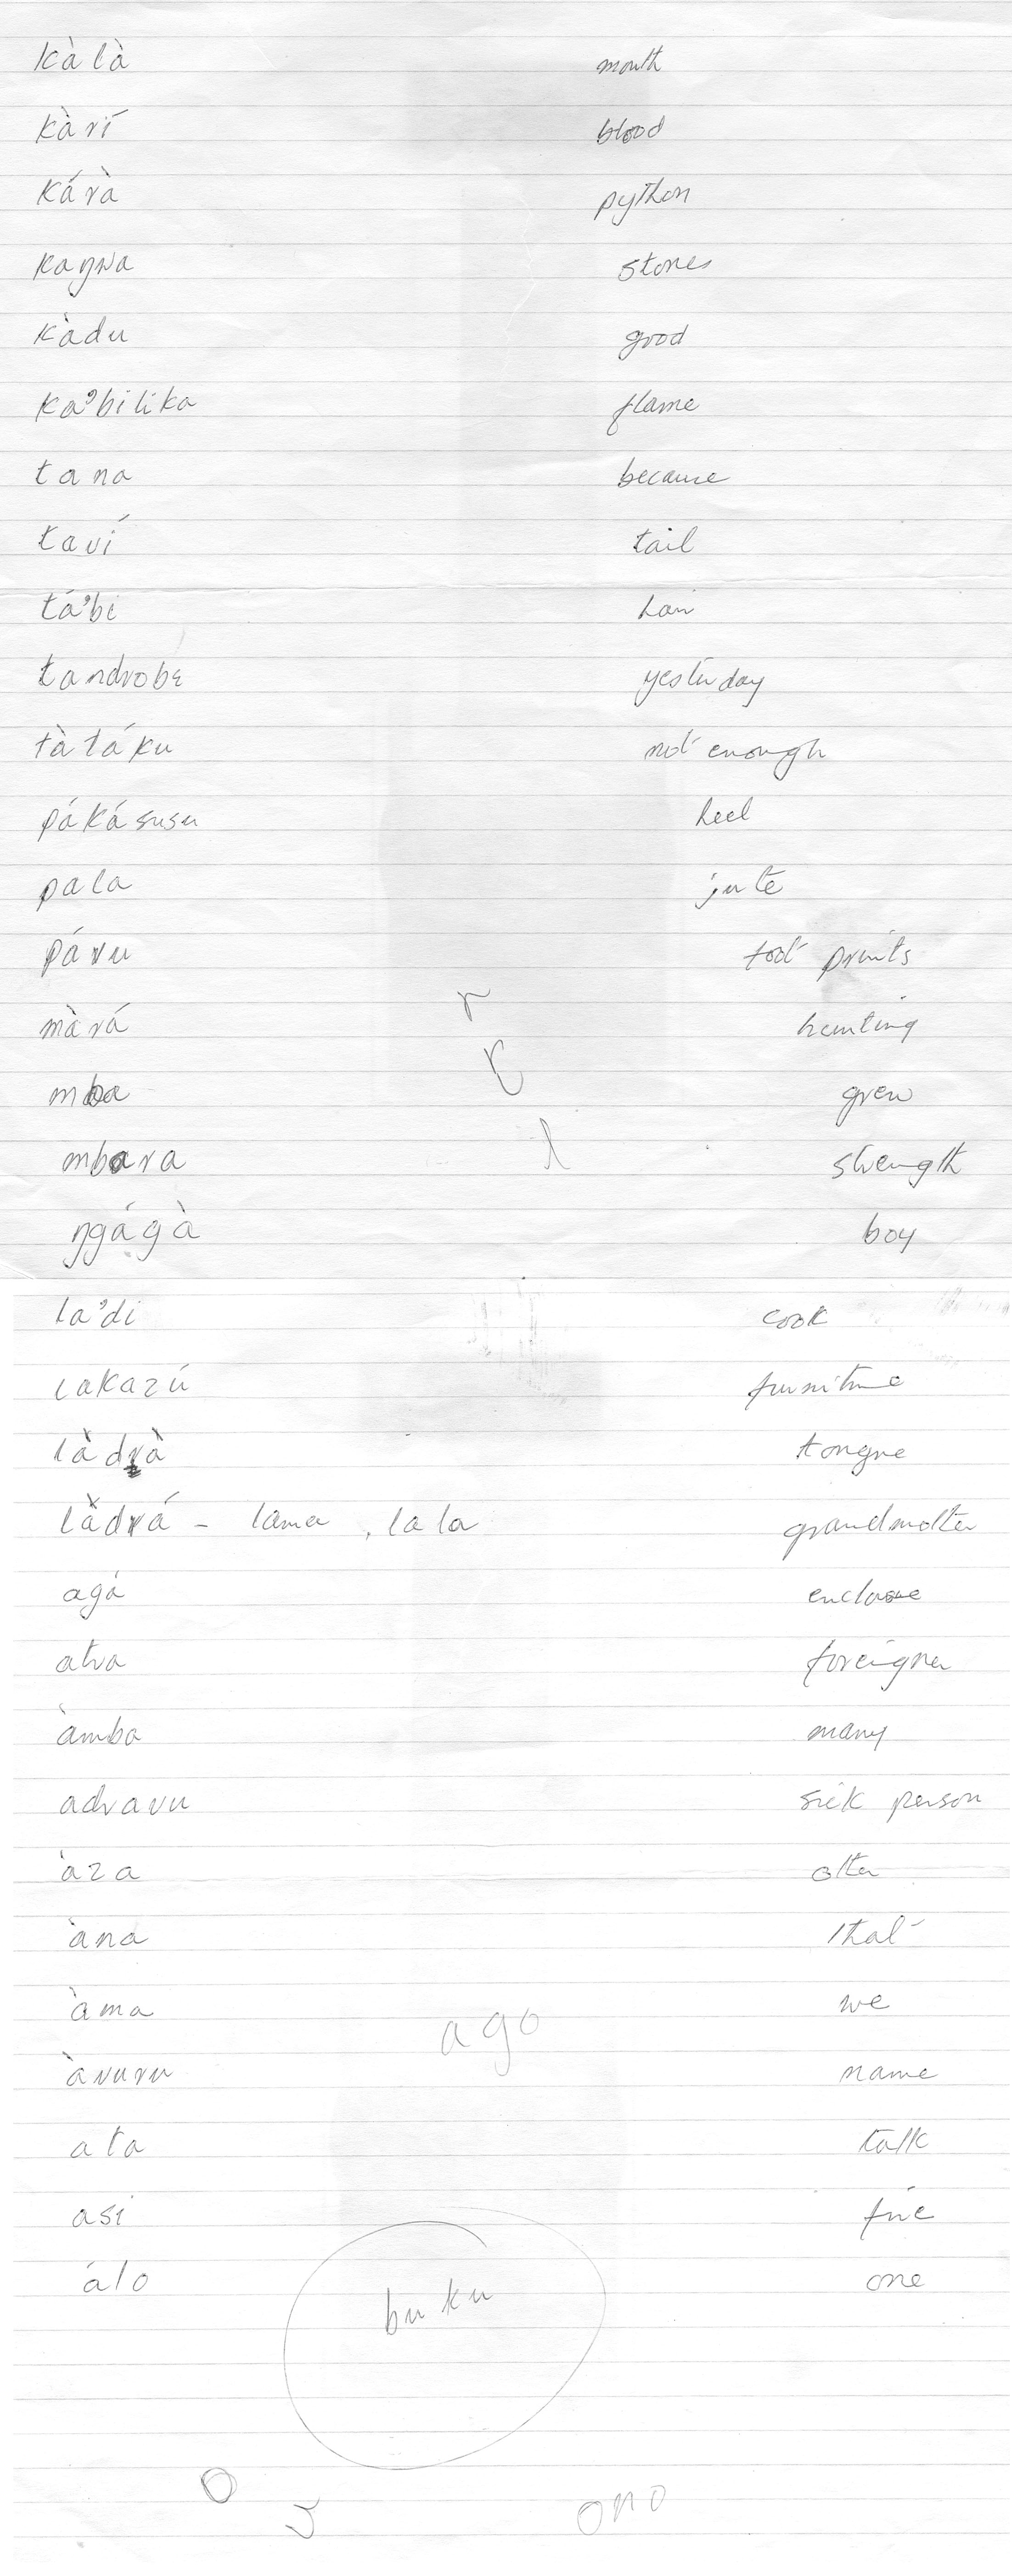 kàlà mouth
kàrí blood
kárà python
kaŋwa stones
kàdu good
kaʼbilika flame
tana because
taví tail
táʼbi hair
tandrobɛ yesterday
tàtáku not enough
pákásusu heel
pala jute
páru foot prints
màrá hunting
r
mba grew
mbara strength
ŋgágà boy
laʼdi cook
lakazú furniture
làdrà tongue
lǎdrá - lama , lala grandmother
agá enclosure
atra foreigner
àmba many
adravu sick person
àza other
àna that
àma we
ago
àvuru name
ata talk
asi fire
álo one
buku
O
ono